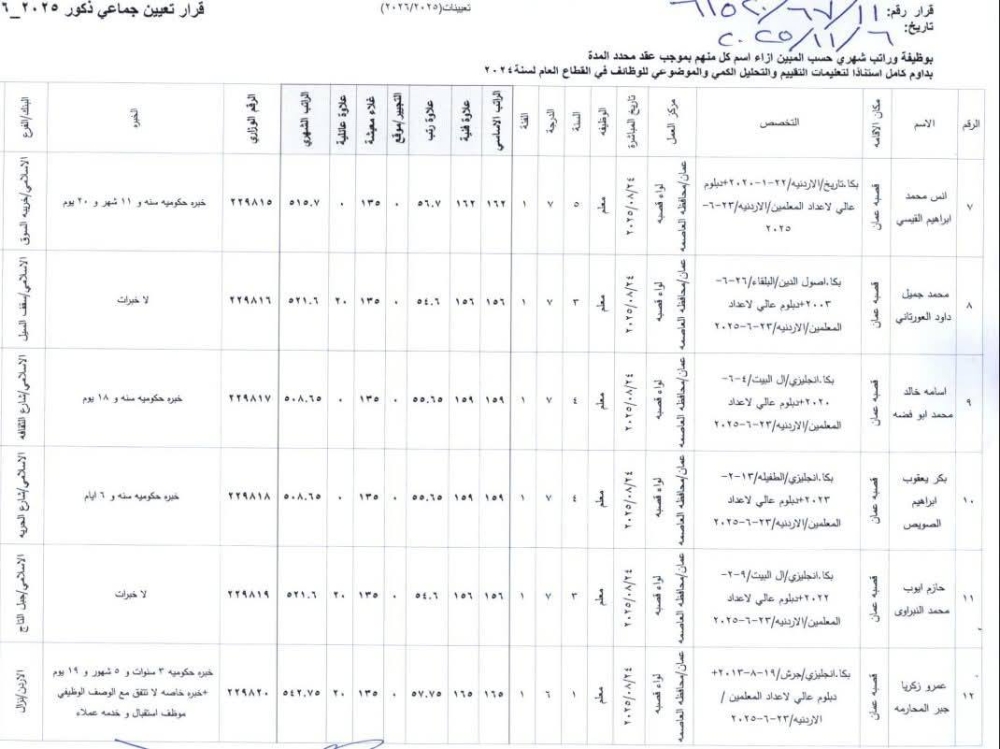 قرار رقم:
تاريخ: ٢٠٢٥/١١/٦
تعيينات(٢٠٢٦/٢٠٢٥)
قرار تعيين جماعي ذكور ٢٠٢٥_٦
بوظيفة وراتب شهري حسب المبين ازاء اسم كل منهم بموجب عقد محدد المدة
بداوم كامل استنادا لتعليمات التقييم والتحليل الكمي والموضوعي للوظائف في القطاع العام لسنة ٢٠٢٤
الرقم الاسم مكان الاقامه التخصص مركز العمل تاريخ المباشرة الوظيفه السنة الدرجة الفئة الراتب الاساسي علاوة فنية علاوة رتب التجيير/موقع غلاء معيشة علاوة عائلية الراتب الشهري الرقم الوزاري الخبره البنك/الفرع
٧ انس محمد ابراهيم القيسي قصبه عمان بكا.تاريخ/الاردنيه/٢٢-١-٢٠٢٠+دبلوم عالي لاعداد المعلمين/الاردنيه/٢٣-٦-٢٠٢٥ عمان/محافظه العاصمه لواء قصبه ٢٠٢٥/٠٨/٢٤ معلم ٥ ٧ ١ ١٦٢ ١٦٢ ٥٦.٧ ٠ ١٣٥ ٠ ٥١٥.٧ ٢٢٩٨١٥ خبره حكوميه سنه و ١١ شهر و ٢٠ يوم الاسلامي/خريبه السوق
٨ محمد جميل داود العورتاني قصبه عمان بكا.اصول الدين/البلقاء/٢٦-٦-٢٠٠٣+دبلوم عالي لاعداد المعلمين/الاردنيه/٢٣-٦-٢٠٢٥ عمان/محافظه العاصمه لواء قصبه ٢٠٢٥/٠٨/٢٤ معلم ٣ ٧ ١ ١٥٦ ١٥٦ ٥٤.٦ ٠ ١٣٥ ٢٠ ٥٢١.٦ ٢٢٩٨١٦ لا خبرات الاسلامي/سقف السيل
٩ اسامه خالد محمد ابو فضه قصبه عمان بكا.انجليزي/ال البيت/٤-٦-٢٠٢٠+دبلوم عالي لاعداد المعلمين/الاردنيه/٢٣-٦-٢٠٢٥ عمان/محافظه العاصمه لواء قصبه ٢٠٢٥/٠٨/٢٤ معلم ٤ ٧ ١ ١٥٩ ١٥٩ ٥٥.٦٥ ٠ ١٣٥ ٠ ٥٠٨.٦٥ ٢٢٩٨١٧ خبره حكوميه سنه و ١٨ يوم الاسلامي/شارع الثقافه
١٠ بكر يعقوب ابراهيم الصويص قصبه عمان بكا.انجليزي/الطفيله/١٣-٢-٢٠٢٣+دبلوم عالي لاعداد المعلمين/الاردنيه/٢٣-٦-٢٠٢٥ عمان/محافظه العاصمه لواء قصبه ٢٠٢٥/٠٨/٢٤ معلم ٤ ٧ ١ ١٥٩ ١٥٩ ٥٥.٦٥ ٠ ١٣٥ ٠ ٥٠٨.٦٥ ٢٢٩٨١٨ خبره حكوميه سنه و ٦ ايام الاسلامي/شارع الحريه
١١ حازم ايوب محمد النبراوي قصبه عمان بكا.انجليزي/ال البيت/٩-٢-٢٠٢٢+دبلوم عالي لاعداد المعلمين/الاردنيه/٢٣-٦-٢٠٢٥ عمان/محافظه العاصمه لواء قصبه ٢٠٢٥/٠٨/٢٤ معلم ٣ ٧ ١ ١٥٦ ١٥٦ ٥٤.٦ ٠ ١٣٥ ٢٠ ٥٢١.٦ ٢٢٩٨١٩ لا خبرات الاسلامي/جبل التاج
١٢ عمرو زكريا جبر المحارمه قصبه عمان بكا.انجليزي/جرش/١٩-٨-٢٠١٣+ دبلوم عالي لاعداد المعلمين / الاردنيه/٢٣-٦-٢٠٢٥ عمان/محافظه العاصمه لواء قصبه ٢٠٢٥/٠٨/٢٤ معلم ١ ٦ ١ ١٦٥ ١٦٥ ٥٧.٧٥ ٠ ١٣٥ ٢٠ ٥٤٢.٧٥ ٢٢٩٨٢٠ خبره حكوميه ٣ سنوات و ٥ شهور و ١٩ يوم +خبره خاصه لا تتفق مع الوصف الوظيفي موظف استقبال و خدمه عملاء الاردن/نزال